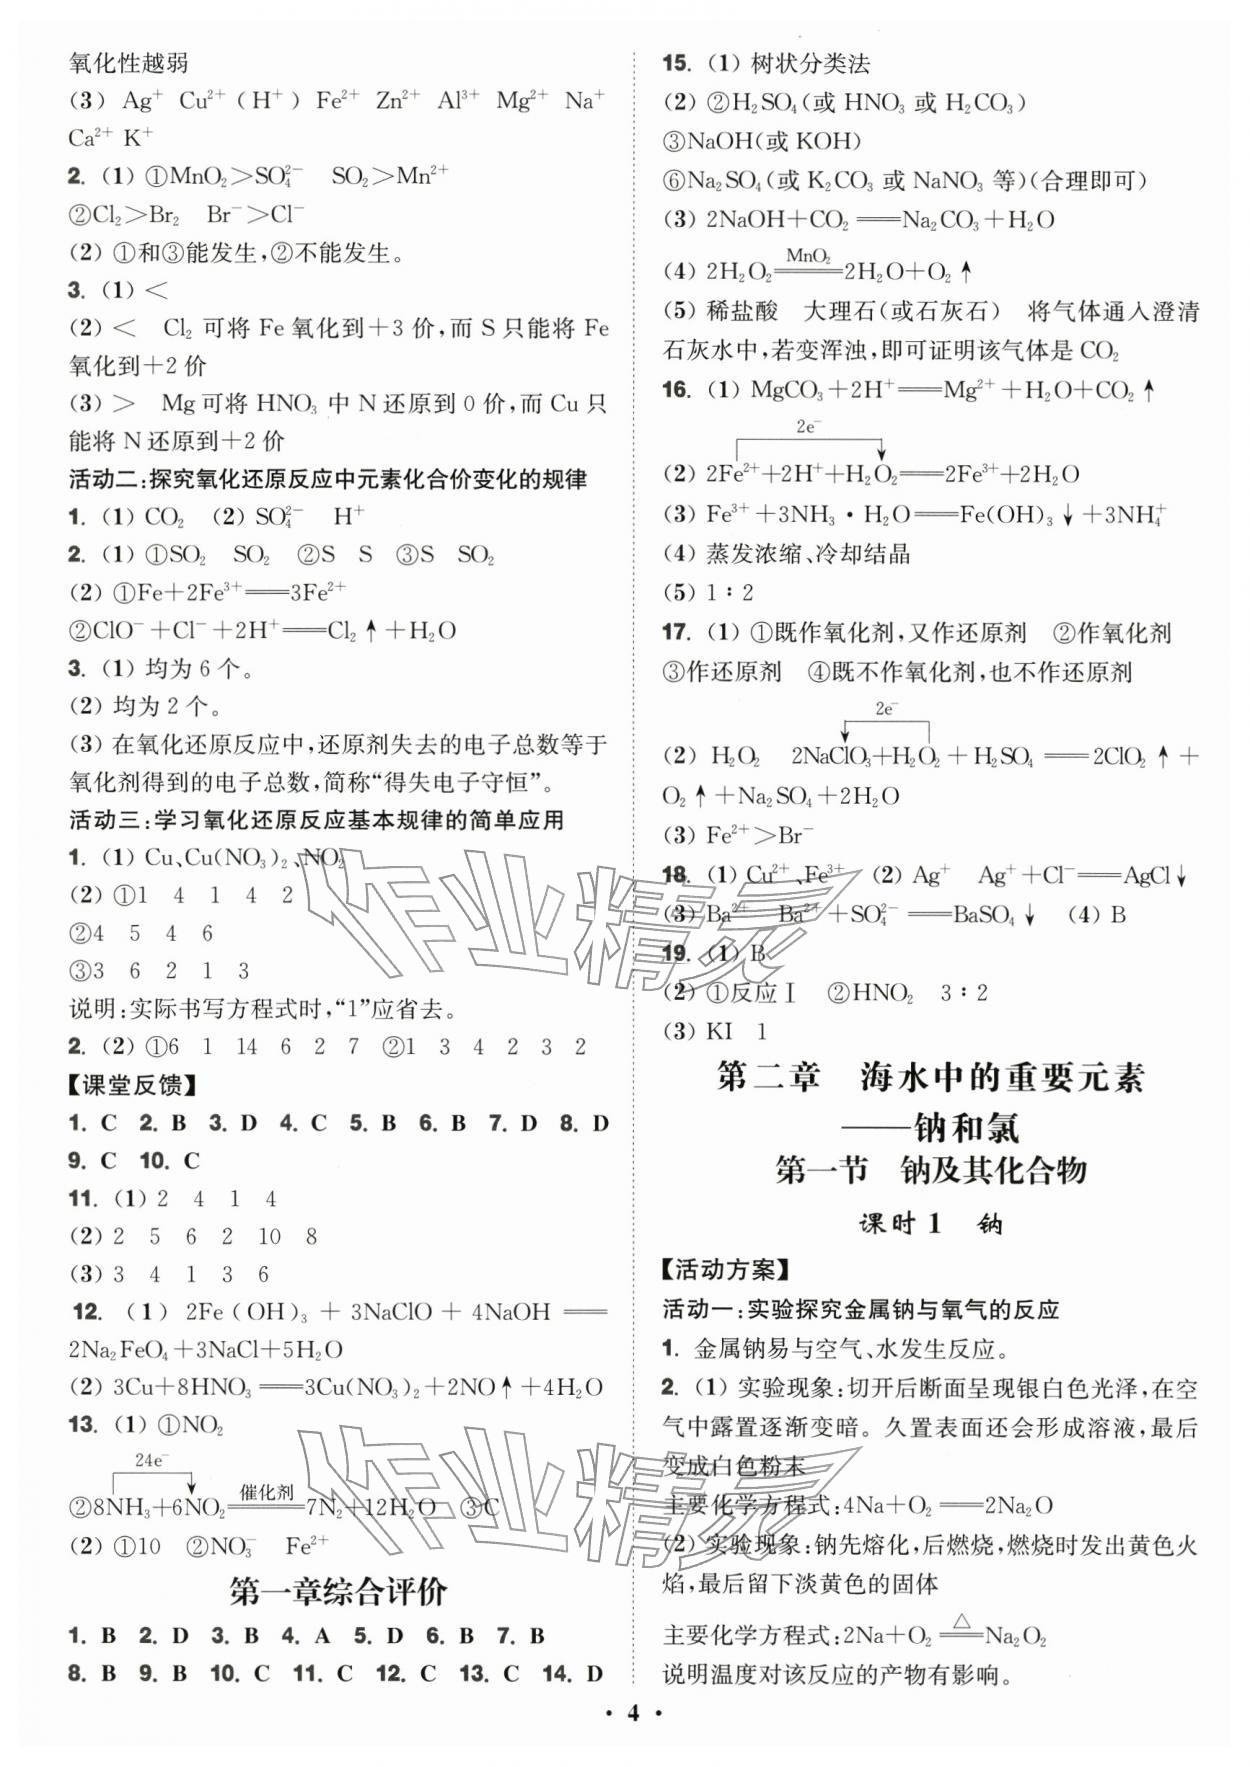 氧化性越弱
(3) Ag⁺ Cu²⁺(H⁺) Fe²⁺ Zn²⁺ Al³⁺ Mg²⁺ Na⁺
Ca²⁺ K⁺
2. (1) ①MnO₂＞SO₄²⁻ SO₂＞Mn²⁺
②Cl₂＞Br₂ Br⁻＞Cl⁻
(2) ①和③能发生,②不能发生。
3. (1) ＜
(2) ＜ Cl₂ 可将 Fe 氧化到＋3 价,而 S 只能将 Fe
氧化到＋2 价
(3) ＞ Mg 可将 HNO₃ 中 N 还原到 0 价,而 Cu 只
能将 N 还原到＋2 价
活动二:探究氧化还原反应中元素化合价变化的规律
1. (1) CO₂ (2) SO₄²⁻ H⁺
2. (1) ①SO₂ SO₂ ②S S ③S SO₂
(2) ①Fe＋2Fe³⁺══3Fe²⁺
②ClO⁻＋Cl⁻＋2H⁺══Cl₂↑＋H₂O
3. (1) 均为 6 个。
(2) 均为 2 个。
(3) 在氧化还原反应中,还原剂失去的电子总数等于
氧化剂得到的电子总数,简称“得失电子守恒”。
活动三:学习氧化还原反应基本规律的简单应用
1. (1) Cu、Cu(NO₃)₂、NO₂
(2) ①1 4 1 4 2
②4 5 4 6
③3 6 2 1 3
说明:实际书写方程式时,“1”应省去。
2. (2) ①6 1 14 6 2 7 ②1 3 4 2 3 2
【课堂反馈】
1. C 2. B 3. D 4. C 5. B 6. B 7. D 8. D
9. C 10. C
11. (1) 2 4 1 4
(2) 2 5 6 2 10 8
(3) 3 4 1 3 6
12. (1) 2Fe(OH)₃＋3NaClO＋4NaOH══
2Na₂FeO₄＋3NaCl＋5H₂O
(2) 3Cu＋8HNO₃══3Cu(NO₃)₂＋2NO↑＋4H₂O
13. (1) ①NO₂
24e⁻
②8NH₃＋6NO₂ 催化剂══ 7N₂＋12H₂O ③C
(2) ①10 ②NO₃⁻ Fe²⁺
第一章综合评价
1. B 2. D 3. B 4. A 5. D 6. B 7. B
8. B 9. B 10. C 11. C 12. C 13. C 14. D
15. (1) 树状分类法
(2) ②H₂SO₄(或 HNO₃ 或 H₂CO₃)
③NaOH(或 KOH)
⑥Na₂SO₄(或 K₂CO₃ 或 NaNO₃ 等)(合理即可)
(3) 2NaOH＋CO₂══Na₂CO₃＋H₂O
(4) 2H₂O₂ MnO₂══ 2H₂O＋O₂↑
(5) 稀盐酸 大理石(或石灰石) 将气体通入澄清
石灰水中,若变浑浊,即可证明该气体是 CO₂
16. (1) MgCO₃＋2H⁺══Mg²⁺＋H₂O＋CO₂↑
2e⁻
(2) 2Fe²⁺＋2H⁺＋H₂O₂══2Fe³⁺＋2H₂O
(3) Fe³⁺＋3NH₃·H₂O══Fe(OH)₃↓＋3NH₄⁺
(4) 蒸发浓缩、冷却结晶
(5) 1∶2
17. (1) ①既作氧化剂,又作还原剂 ②作氧化剂
③作还原剂 ④既不作氧化剂,也不作还原剂
2e⁻
(2) H₂O₂ 2NaClO₃＋H₂O₂＋H₂SO₄══2ClO₂↑＋
O₂↑＋Na₂SO₄＋2H₂O
(3) Fe²⁺＞Br⁻
18. (1) Cu²⁺、Fe³⁺ (2) Ag⁺ Ag⁺＋Cl⁻══AgCl↓
(3) Ba²⁺ Ba²⁺＋SO₄²⁻══BaSO₄↓ (4) B
19. (1) B
(2) ①反应Ⅰ ②HNO₂ 3∶2
(3) KI 1
第二章 海水中的重要元素
——钠和氯
第一节 钠及其化合物
课时 1 钠
【活动方案】
活动一:实验探究金属钠与氧气的反应
1. 金属钠易与空气、水发生反应。
2. (1) 实验现象:切开后断面呈现银白色光泽,在空
气中露置逐渐变暗。久置表面还会形成溶液,最后
变成白色粉末
主要化学方程式:4Na＋O₂══2Na₂O
(2) 实验现象:钠先熔化,后燃烧,燃烧时发出黄色火
焰,最后留下淡黄色的固体
主要化学方程式:2Na＋O₂ △══ Na₂O₂
说明温度对该反应的产物有影响。
· 4 ·
作业精灵
作业精灵